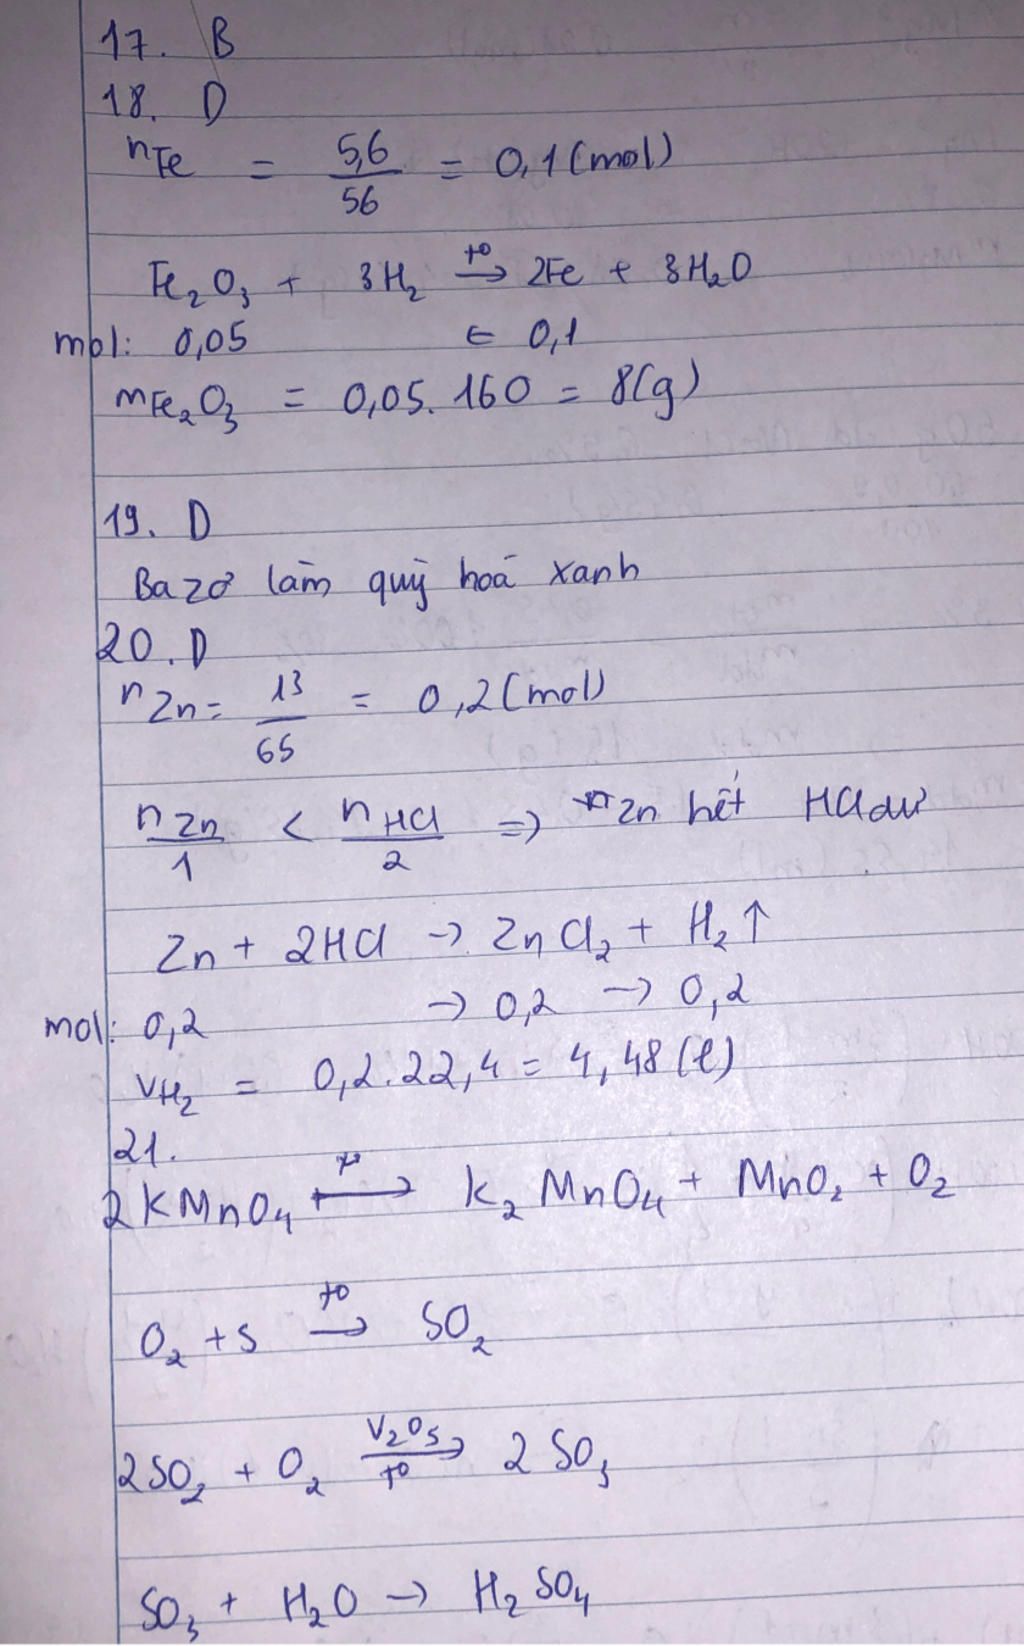 17. B
18. D
nFe = 5,6/56 = 0,1 (mol)
Fe₂O₃ + 3H₂ →(t⁰) 2Fe + 3H₂O
mol: 0,05 ← 0,1
mFe₂O₃ = 0,05. 160 = 8(g)
19. D
Bazơ làm quỳ hoá xanh
20. D
nZn = 13/65 = 0,2 (mol)
nZn/1 < nHCl/2 => Zn hết HCl dư
Zn + 2HCl → ZnCl₂ + H₂↑
mol: 0,2 → 0,2 → 0,2
VH₂ = 0,2.22,4 = 4,48 (l)
21.
2KMnO₄ →(t⁰) K₂MnO₄ + MnO₂ + O₂
O₂ + S →(t⁰) SO₂
2SO₂ + O₂ →(V₂O₅, t⁰) 2SO₃
SO₃ + H₂O → H₂SO₄